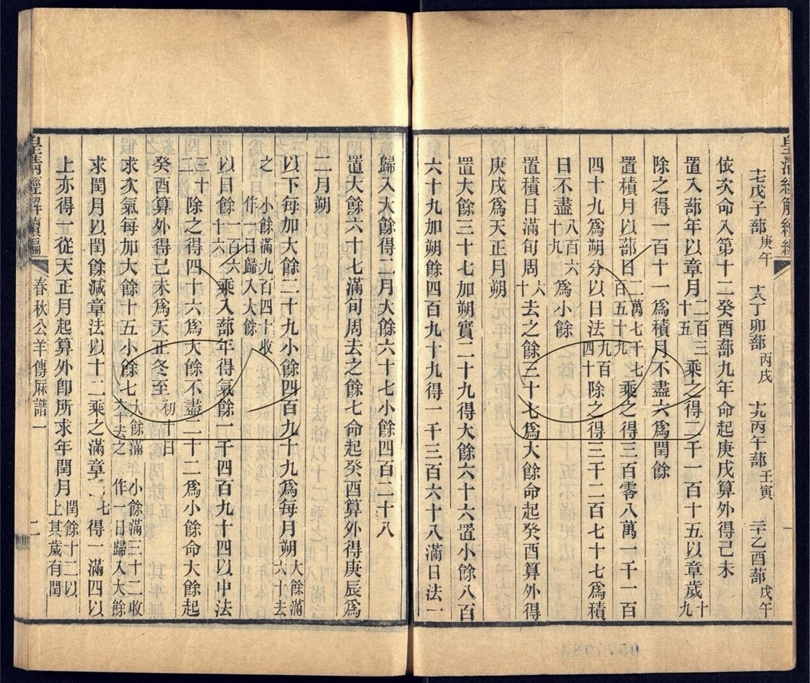 皇清經解續編
十七戊子蔀庚午　十八丁卯蔀丙戌　十九丙午蔀壬寅　二十乙酉蔀戊午
依次命入第十二癸酉蔀九年命起庚戌算外得己未
置入蔀年以章月二百三十五乘之得二千一百十五以章歲十九
除之得一百十一爲積月不盡六爲閏餘
置積月以蔀日二萬七千七百五十九乘之得三百零八萬一千一百
四十九爲朔分以日法九百四十除之得三千二百七十七爲積
日不盡八百六十九爲小餘
置積日滿旬周六十去之餘三十七爲大餘命起癸酉算外得
庚戌爲天正月朔
置大餘三十七加朔實二十九得大餘六十六置小餘八百
六十九加朔餘四百九十九得一千三百六十八滿日法一
歸入大餘得二月大餘六十七小餘四百二十八
置大餘六十七滿旬周去之餘七命起癸酉算外得庚辰爲
二月朔
以下每加大餘二十九小餘四百九十九爲每月朔大餘滿六十去
之小餘滿九百四十收作一日歸入大餘
以日餘一百六十六乘入蔀年得氣餘一千四百九十四以中法
三十二除之得四十六爲大餘不盡二十二爲小餘命大餘起
癸酉算外得己未爲天正冬至初十日
求次氣每加大餘十五小餘七大餘滿六十去之小餘滿三十二收作一日歸入大餘
求閏月以閏餘減章法以十二乘之滿章七得一滿四以
上亦得一從天正月起算外卽所求年閏月閏餘十二以上其歲有閏
皇清經解續編　春秋公羊傳厤譜一　二